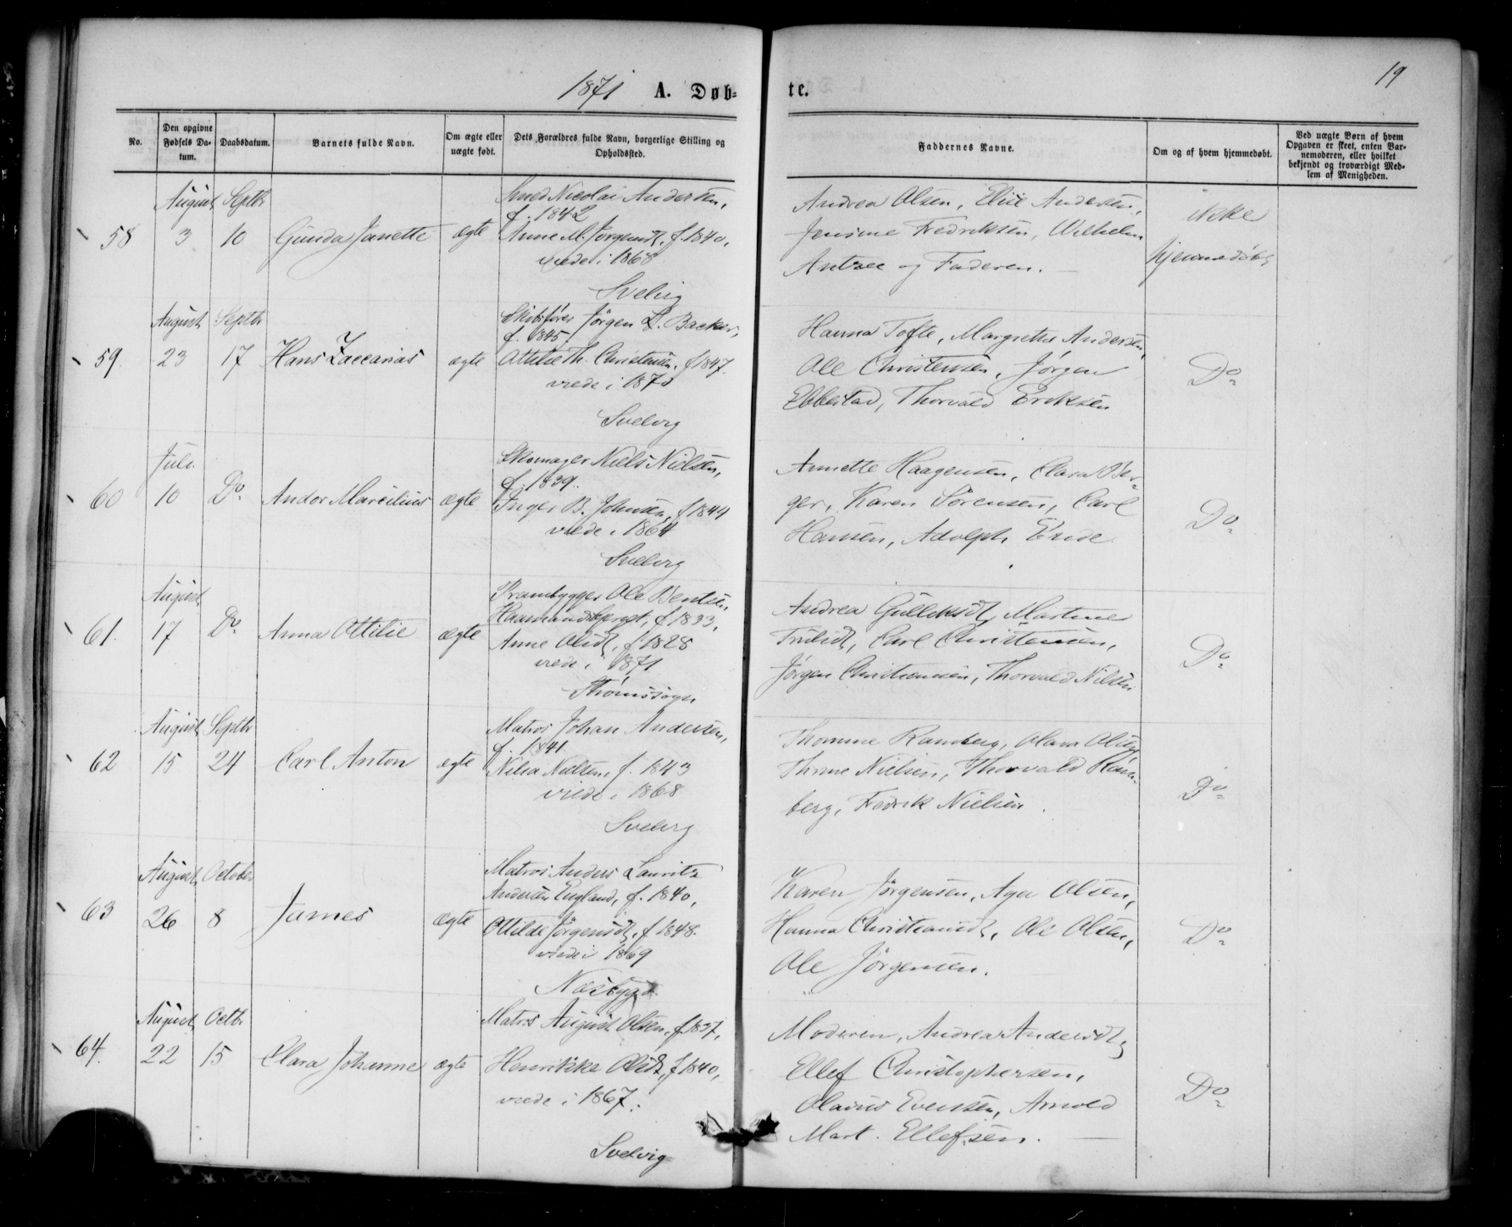 1871 A. Døb- te. 19
No.
Den opgivne Fødsels Da-tum.
Daabsdatum.
Barnets fulde Navn.
Om ægte eller uægte født.
Dets Forældres fulde Navn, borgerlige Stilling og Opholdssted.
Faddernes Navne.
Om og af hvem hjemmedøbt.
Ved uægte Børn af hvem Opgaven er skeet, enten Bar-nemoderen, eller hvilket bekjendt og troværdigt Med-lem af Menigheden.
58
August 3
Septbr 10
Gunda Janette
ægte
Smed Nicolai Andersen,
f. 1842
Anne M. Jørgensdt, f 1840,
viede i 1868
Svelvig
Andrea Olsen, Elise Andersen,
Jensine Fredriksen, Wilhelm
og Faderen.
ikke
hjemmedøbt
59.
August 23
Septbr 17
Hans Zaccarias
ægte
Jørgen L. Backer,
f. 1845.
Ottilie Th. Christensen, f 1847.
viede i 1870
Svelvig
Hanna Tofte, Margrethe Andersen,
Ole Christensen, Jørgen
Ebbestad, Thorvald Eriksen
Do
60
Juli 10
Do
Andor Marcilius
ægte
Skomager Niels Nielsen,
f. 1839.
Inger B. Johnsen, f 1844
viede i 1864
Svelvig
Annette Haagensen, Clara Ber-
ger, Karen Sørensen, Carl
Hansen, Adolph
Do
61.
August 17
Do
Anna Ottilie
ægte
Prambygger Ole Bentsen
f 1833,
Anne Olsdt, f 1828
viede i 1871
Strømssogn
Andrea Gulliksdt,
Carl Christensen,
Jørgen Christiansen, Thorvald Nilsen
Do
62
August 15
Septbr 24
Carl Anton
ægte
Matros Johan Andersen,
f. 1841
Nilsen f. 1843
viede i 1868
Svelvig
Thomine Ramberg,
Nielsen, Thorvald Ram-
berg, Fredrik Nielsen.
Do
63
August 26
October 8
James
ægte
Matros Anders Lauritz
Andersen England, f. 1840,
Ottilde Jørgensdt, f 1848.
viede i 1869
Nesbygd
Karen Jørgensen, Olsen,
Hanna Christiansdt, Ole Olsen,
Ole Jørgensen.
Do
64.
August 22
Octbr 15
Clara Johanne
ægte
Matros August Olsen, f 1837,
Henrikke Olsdt, f 1840,
viede i 1867.
Svelvig
Moderen, Andrea Andersdt,
Ellef Christophersen,
Olavus Evensen, Arnold
Mart. Ellefsen.
Do